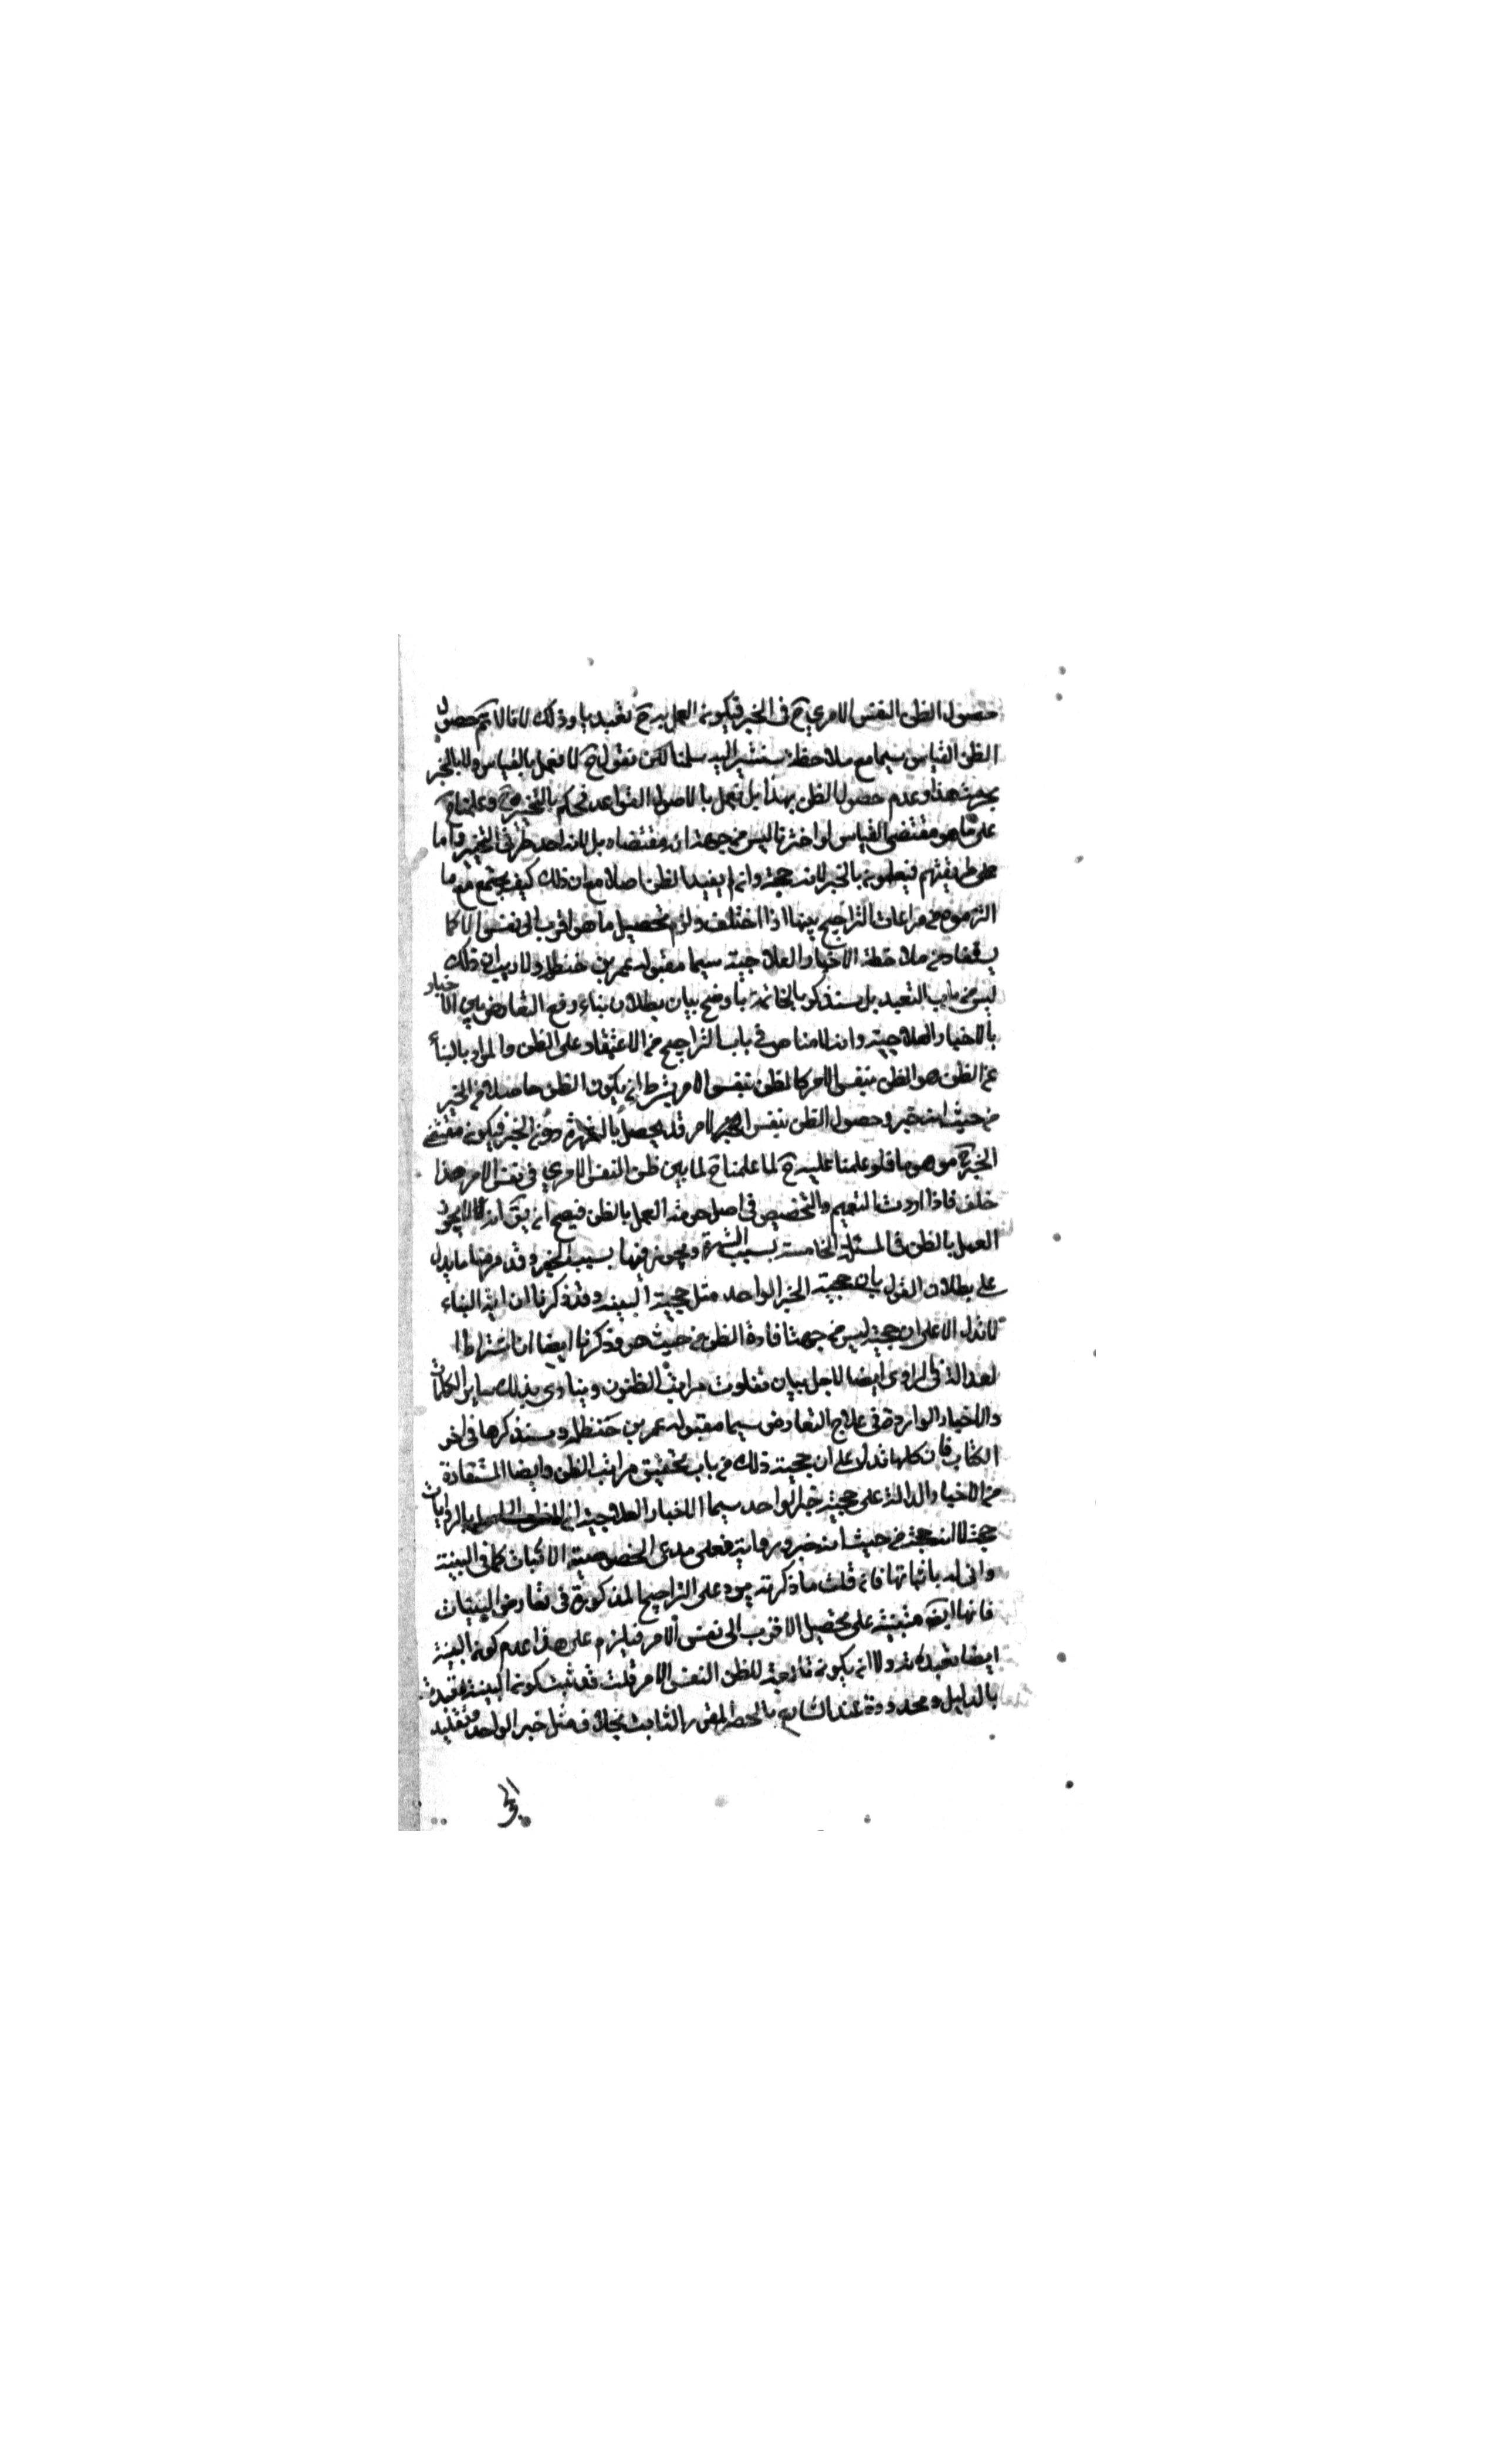 حصول الظن النفس الامري ح فى الخبر فيكون العمل به ح تعبديا وذلك لانا لانم حصول
الظن القياس سيما مع ملاحظة سنشير اليه سلمنا لكن نقول ح لا نعمل بالقياس ولا بالخبر
بحيث هذا وعدم حصول الظن بهذا بل نعمل بالاصول القواعد فنحكم بالتخيير ح وعلمنا ح
على ما هو مقتضى القياس لو اخترنا ليس من جهة انه مقتضاه بل لانه احد طرفى التخيير واما
على طريقتهم فيعملون بالخبر لانه حجة وان لم يفيد الظن اصلا مع ان ذلك كيف يجتمع مع ما
التزموه من مراعات التراجيح بينها اذا اختلف ولزم تحصيل ما هو اقرب الى نفس الا كما
يستفاد من ملاحظة الاخبار العلاجية سيما مقبوله عمر بن حنظله ولا ريب ان ذلك
ليس من باب التعبد بل سنذكر بالخاتمة باوضح بيان بطلان بناء دفع التعارض بين الاخبار
بالاخبار العلاجية وانه لا مناص فى باب التراجيح من الاعتماد على الظن والمراد بالبنا
عن الظن هو الظن بنفس الامر كالظن بنفس الامر بشرط ان يكون الظن حاصلا من الخبر
من حيث انه خبر وحصول الظن بنفس الامر قد يحصل بالشهرة دون الخبر فيكون مقتضى
الخبر ح موهوما فلو علمنا عليه ح لما علمنا ح لما بين ظن النفس الامري فى نفس الامر هذا
خلف فاذا اردت التعميم والتخصيص فى اصل حرمة العمل بالظن فيصح ان يق انه لا يجوز
العمل بالظن فى المسئلة الخامسة بسبب الشهرة ويجوز فيها بسبب الخبر وقد مر منا ما يدل
على بطلان القول بان حجية الخبر الواحد مثل حجية البينه وقد ذكرنا ان اية البناء
لا تدل الا على ان حجيته ليس من جهة افادة الظن من حيث هو وذكرنا ايضا ان اشتراط ا
لعدالة فى الراوى ايضا لاجل بيان تفاوت مراتب الظنون وينادى بذلك ساير الكلمات
والاخبار الواردة فى علاج التعارض سيما مقبوله عمر بن حنظله وسنذكرها فى اخر
الكتاب فان كلها تدل على ان حجية ذلك من باب تحقيق مراتب الظن وايضا المستفادة
من الاخبار الدالة على حجية خبر الواحد سيما الاخبار العلاجية ان بالروايات
حجة لا انه حجة من حيث انه خبر ورواية فعلى مدعى الخصوصية الاثبات كما فى البينة
وانى له باثباتها فان قلت ما ذكرته يرد على التراجيح المذكورة فى تعارض البينات
فانها ايضا مبتنية على تحصيل الاقرب الى نفس الامر فيلزم على هذا عدم كون البينة
ايضا تعبدية ولا ان يكون تارحة للظن النفس الامر قلت قد ثبت كون البينة معتبرة
بالدليل ومحدودة عند الشارع بالحصر المقرر الثابت بخلاف مثل خبر الواحد وتقليد